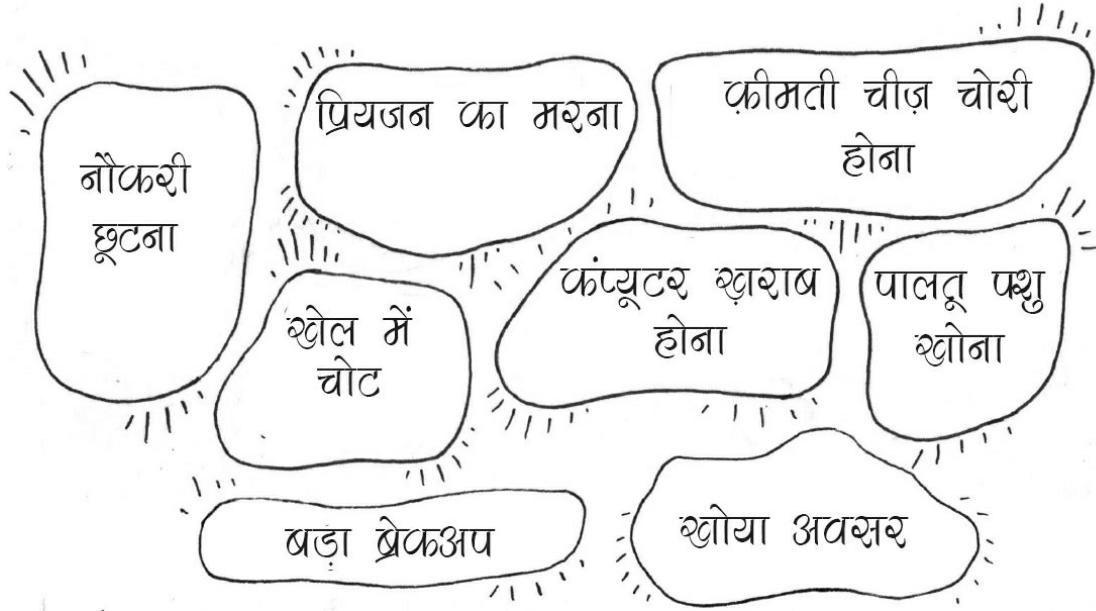 नौकरी
छूटना
प्रियजन का मरना
क़ीमती चीज़ चोरी
होना
खेल में
चोट
कंप्यूटर ख़राब
होना
पालतू पशु
खोना
बड़ा ब्रेकअप
खोया अवसर